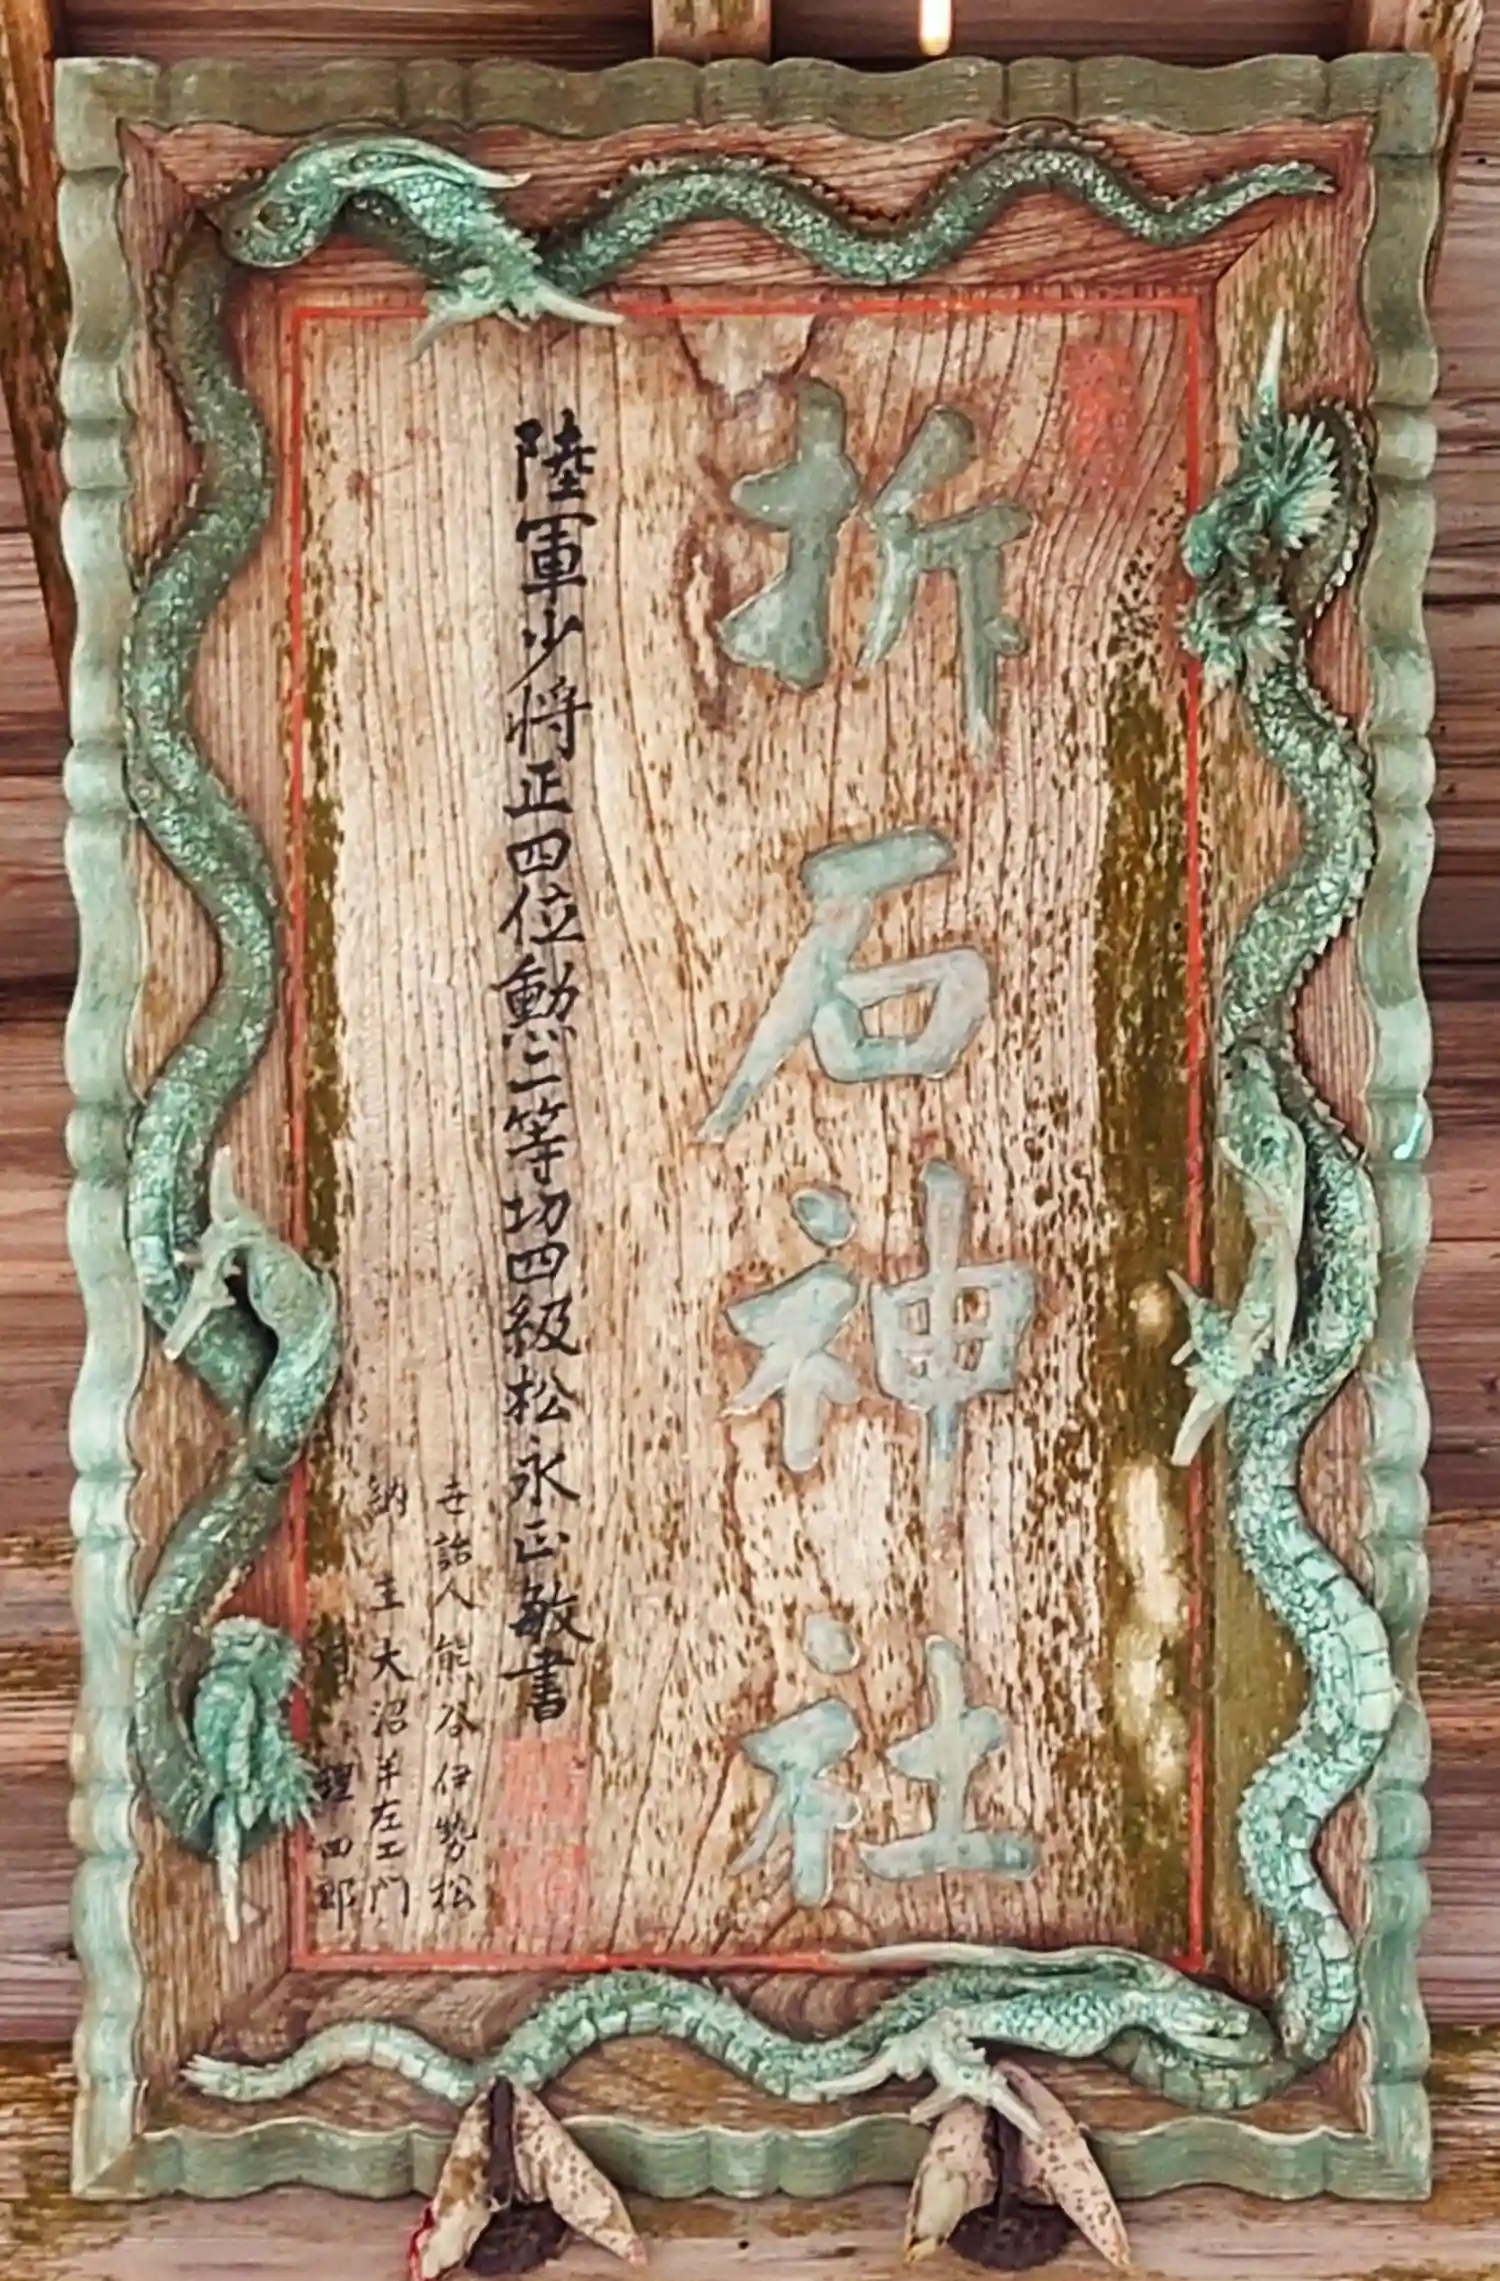 折石神社
陸軍少将正四位勲二等功四級松永正敏書
世話人熊谷伊勢松
納主大沼半左エ門
理四郎